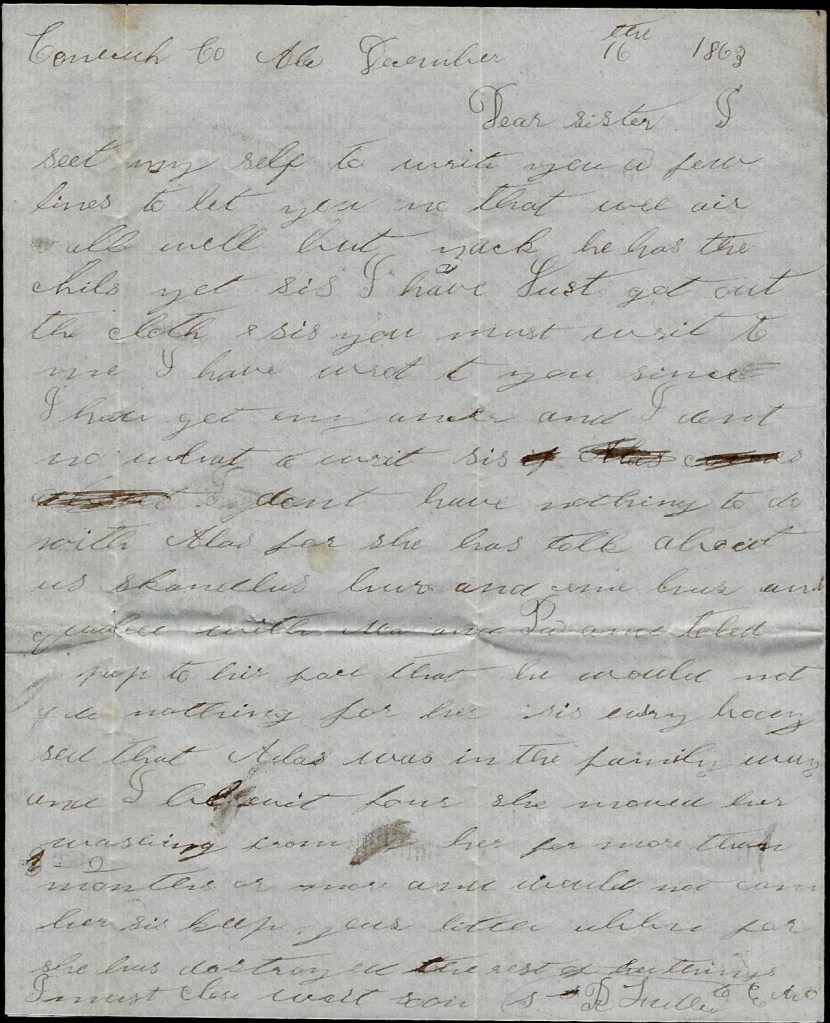 Conecuh Co Ala December 16 the 1863
Dear sister I
seet my self to write you a few
lines to let you no that wee air
all well but he has the
chils yet sis I have Just got out
the cloth & sis you must writ to
me I have wrot t you since
I have get any and I dont
no what to writ sis
I dont have nothing to do
with Alas for she has talk about
us skandlus hur and come hur and
with Ma and Pa and toled
pap to his face that he would not
do nothing for her sis evry boody
sed that Alas was in the family way
and I it four she moved her
washing from her for more than
months or more and would not com
her sis keep your litter for
she has destroyed the rest of her things
I must close writ soon